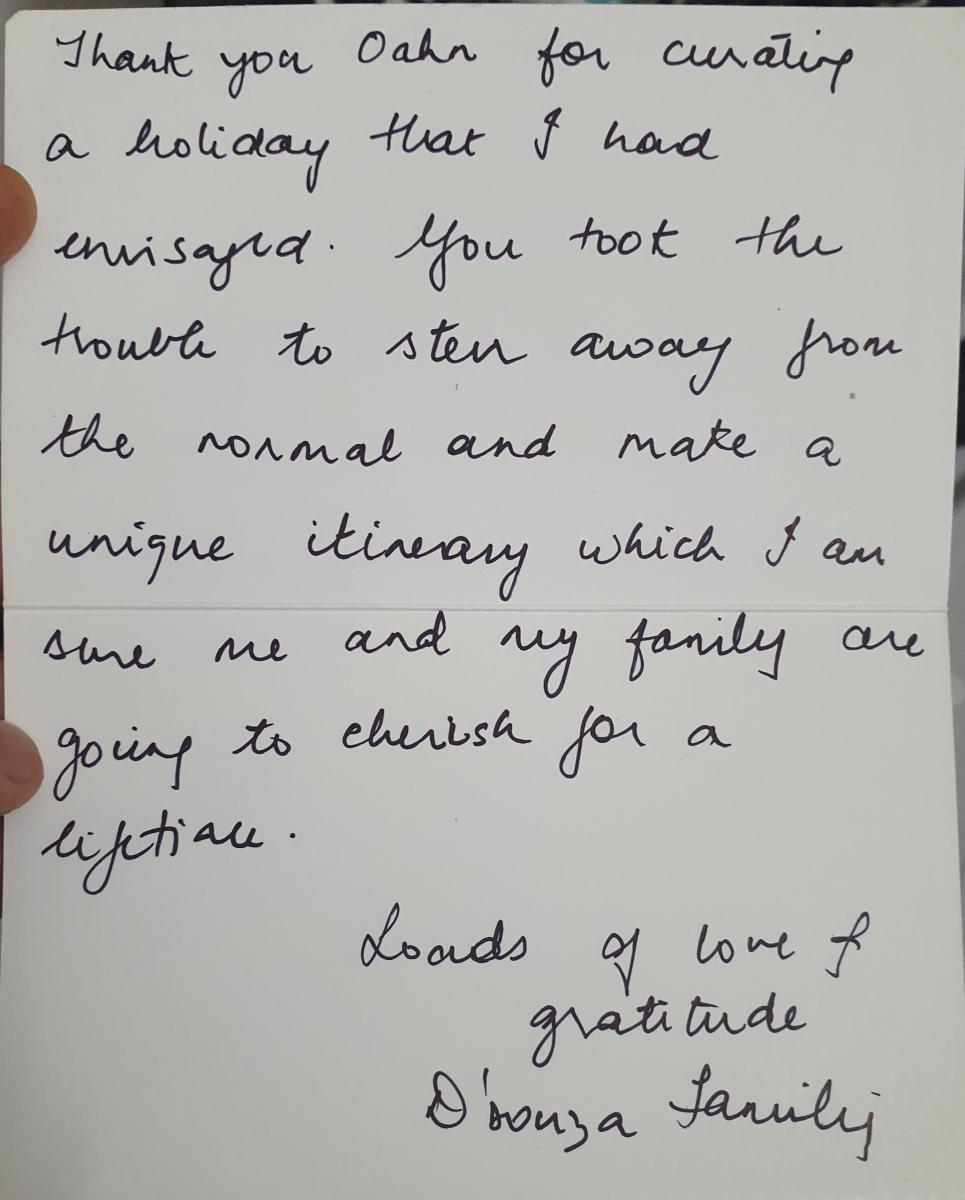 Thank you Oahn for curating
a holiday that I had
envisaged. You took the
trouble to steer away from
the normal and make a
unique itinerary which I am
sure me and my family are
going to cherish for a
lifetime.
Loads of love &
gratitude
D'souza Family